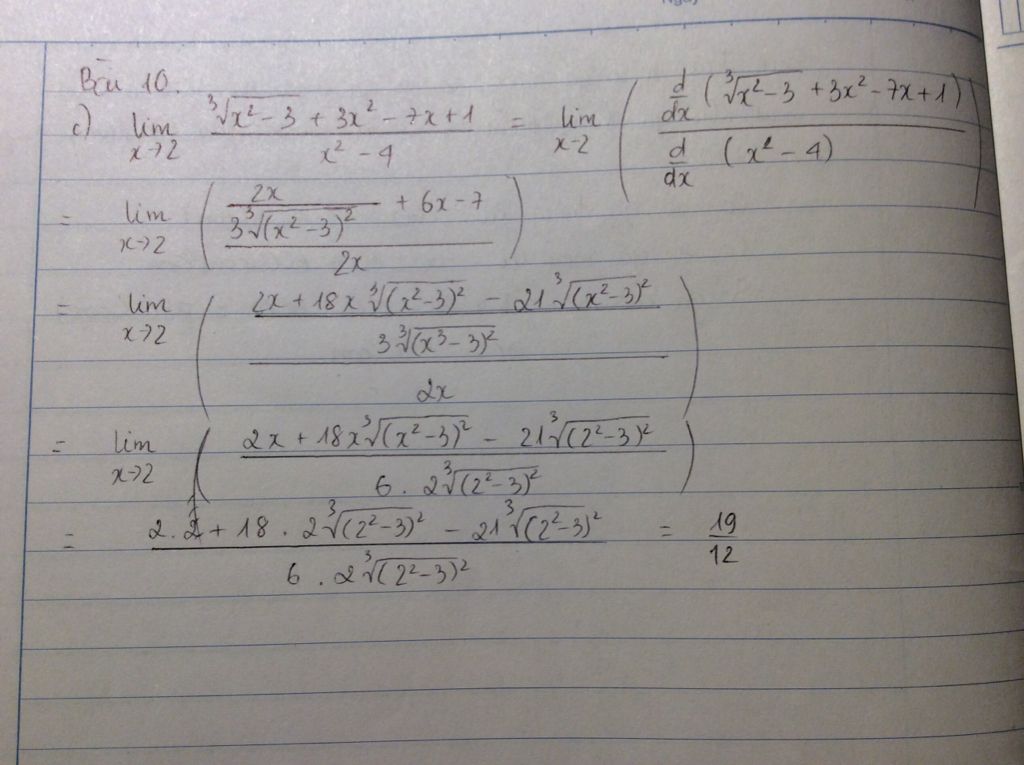 Bài 10.
c) lim x→2 (∛(x² - 3) + 3x² - 7x + 1)/(x² - 4) = lim x-2 ( (d/dx (∛(x² - 3) + 3x² - 7x + 1)) / (d/dx (x² - 4)) )
= lim x→2 ( (2x/(3∛(x² - 3)²) + 6x - 7) / 2x )
= lim x→2 ( ((2x + 18x∛(x² - 3)² - 21∛(x² - 3)²) / (3∛(x³ - 3)²)) / 2x )
= lim x→2 ( (2x + 18x∛(x² - 3)² - 21∛(2² - 3)²) / (6 . 2∛(2² - 3)²) )
= (2.2 + 18 . 2∛(2² - 3)² - 21∛(2² - 3)²) / (6 . 2∛(2² - 3)²) = 19/12